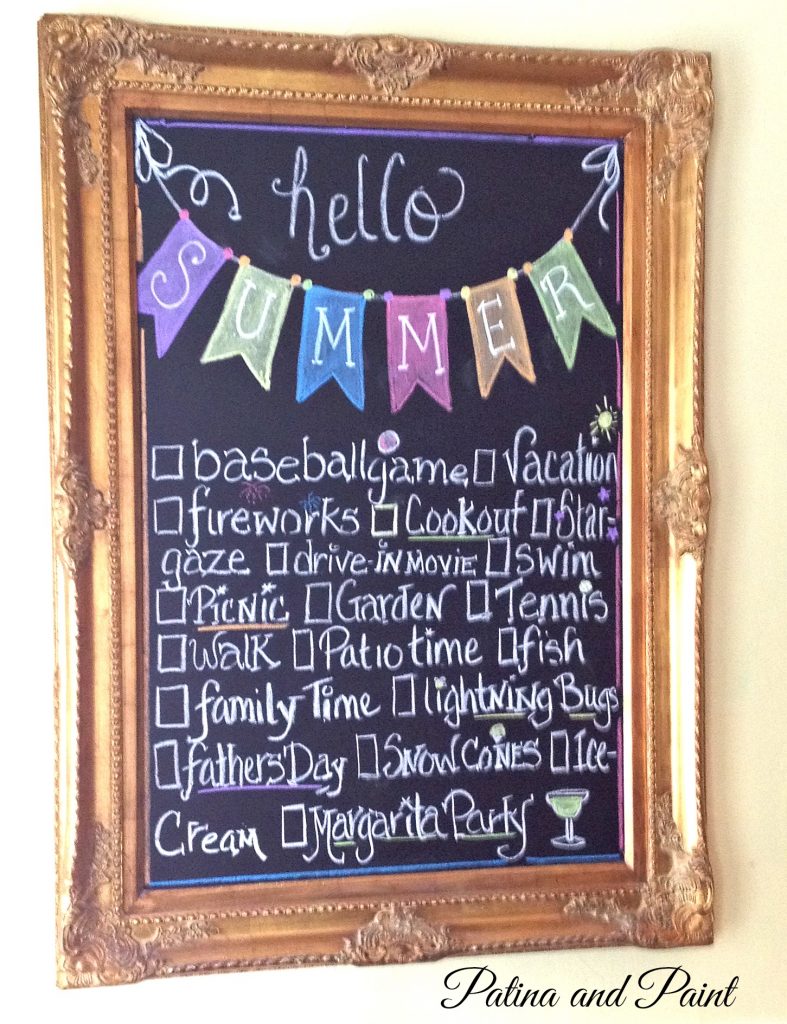 hello
SUMMER
☐ baseball game ☐ Vacation
☐ fireworks ☐ Cookout ☐ Star-
gaze ☐ drive-IN MOVIE ☐ Swim
☐ PicNic ☐ GardeN ☐ Tennis
☐ Walk ☐ Patio time ☐ fish
☐ family Time ☐ lightNiNg Bugs
☐ fathers' Day ☐ SNOW CONES ☐ Ice-
Cream ☐ Margarita Party
Patina and Paint